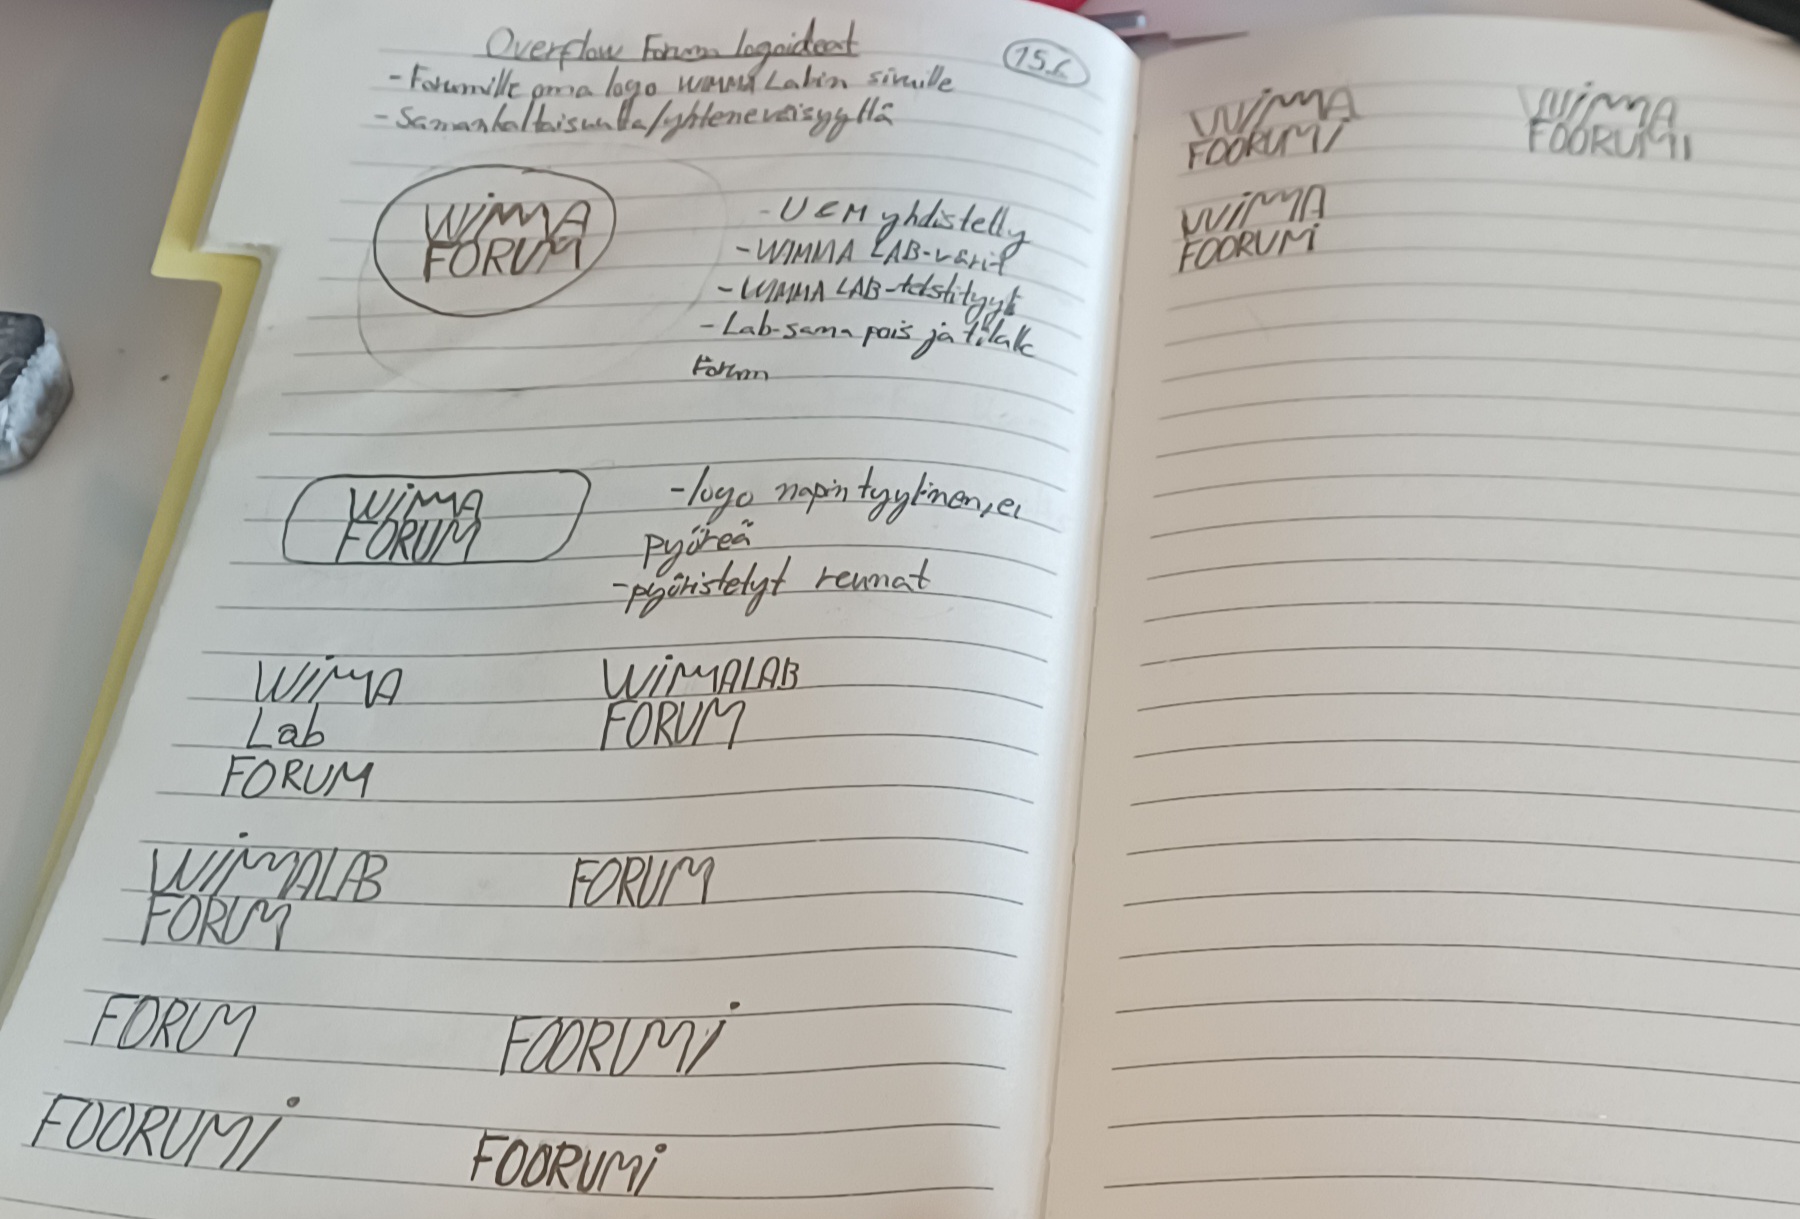 Overflow Forum logoideat
15.6
- Forumille oma logo WIMMA Labin sivuille
- Samankaltaisuudella/yhteneväisyyllä
WiMMA
FORUM
- U & M yhdistelly
- WIMMA LAB-värit
- WIMMA LAB-tekstityyli
- Lab-sana pois ja tilalle
Forum
WiMMA
FORUM
- logo napin tyylinen, ei
pyöreä
- pyöristetyt reunat
WiMMA
Lab
FORUM
WiMMALAB
FORUM
WiMMALAB
FORUM
FORUM
FORUM
FOORUMi
FOORUMi
FOORUMi
WiMMA
FOORUMi
WiMMA
FOORUMi
WiMMA
FOORUMi